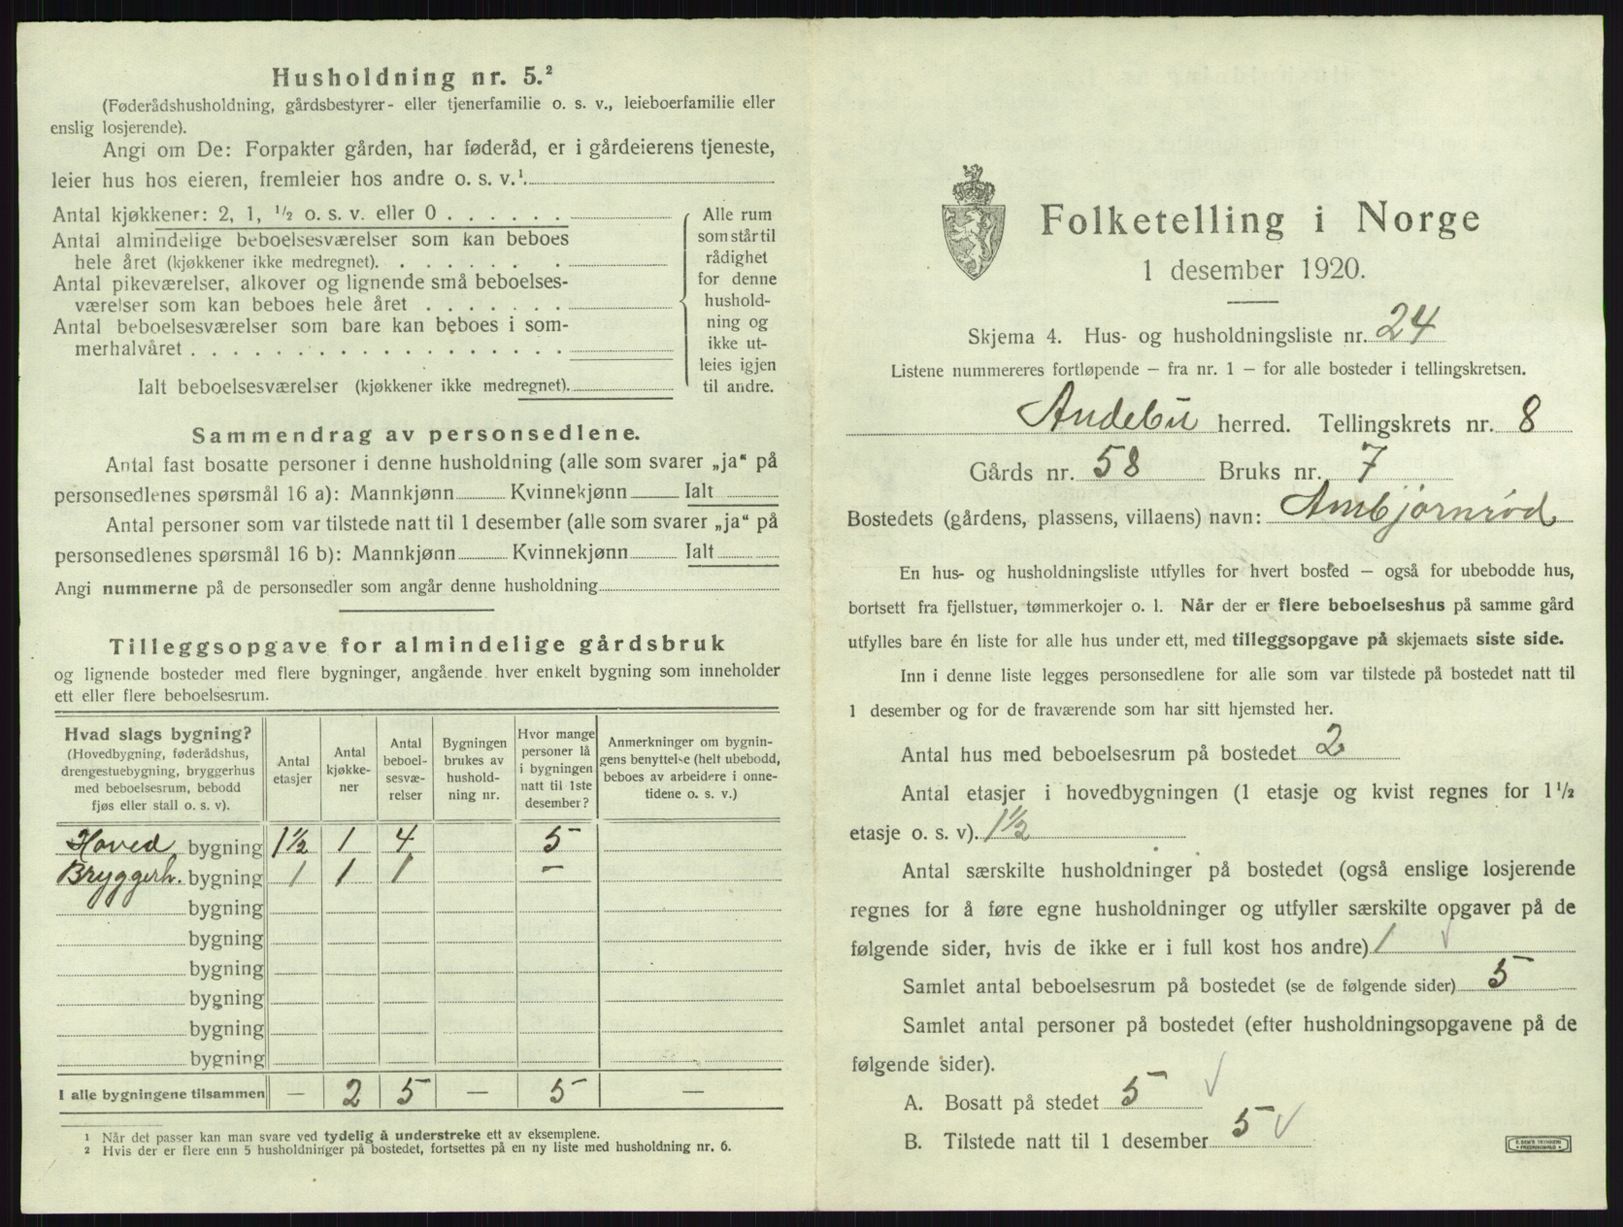 Husholdning nr. 5.²
(Føderådshusholdning, gårdsbestyrer- eller tjenerfamilie o. s. v., leieboerfamilie eller
enslig losjerende).
Angi om De: Forpakter gården, har føderåd, er i gårdeierens tjeneste,
leier hus hos eieren, fremleier hos andre o. s. v.¹.
Antal kjøkkener: 2, 1, ½ o. s. v. eller 0 . . . . . .
Antal almindelige beboelsesværelser som kan beboes
hele året (kjøkkener ikke medregnet). . . . . . . .
Antal pikeværelser, alkover og lignende små beboelses-
værelser som kan beboes hele året . . . . . . .
Antal beboelsesværelser som bare kan beboes i som-
merhalvåret . . . . . . . . . . . . . . . . . .
Ialt beboelsesværelser (kjøkkener ikke medregnet).
Alle rum
som står til
rådighet
for denne
hushold-
ning og
ikke ut-
leies igjen
til andre.
Sammendrag av personsedlene.
Antal fast bosatte personer i denne husholdning (alle som svarer „ja“ på
personsedlenes spørsmål 16 a): Mannkjønn Kvinnekjønn Ialt
Antal personer som var tilstede natt til 1 desember (alle som svarer „ja“ på
personsedlenes spørsmål 16 b): Mannkjønn Kvinnekjønn Ialt
Angi nummerne på de personsedler som angår denne husholdning
Tilleggsopgave for almindelige gårdsbruk
og lignende bosteder med flere bygninger, angående hver enkelt bygning som inneholder
ett eller flere beboelsesrum.
Hvad slags bygning?
(Hovedbygning, føderådshus,
drengestuebygning, bryggerhus
med beboelsesrum, bebodd
fjøs eller stall o. s. v).
Antal
etasjer
Antal
kjøkke-
ner
Antal
beboel-
sesvæ-
relser
Bygningen
brukes av
hushold-
ning nr.
Hvor mange
personer lå
i bygningen
natt til 1ste
desember?
Anmerkninger om bygnin-
gens benyttelse (helt ubebodd,
beboes av arbeidere i onne-
tidene o. s. v.)
Hoved bygning 1½ 1 4 5
Bryggerh. bygning 1 1 1 –
bygning
bygning
bygning
bygning
bygning
bygning
I alle bygningene tilsammen — 2 5 — 5 —
¹ Når det passer kan man svare ved tydelig å understreke ett av eksemplene.
² Hvis der er flere enn 5 husholdninger på bostedet, fortsettes på en ny liste med husholdning nr. 6.
Folketelling i Norge
1 desember 1920.
Skjema 4. Hus- og husholdningsliste nr. 24
Listene nummereres fortløpende — fra nr. 1 — for alle bosteder i tellingskretsen.
Andebu herred. Tellingskrets nr. 8
Gårds nr. 58 Bruks nr. 7
Bostedets (gårdens, plassens, villaens) navn: Ambjørnrød
En hus- og husholdningsliste utfylles for hvert bosted — også for ubebodde hus,
bortsett fra fjellstuer, tømmerkojer o. l. Når der er flere beboelseshus på samme gård
utfylles bare én liste for alle hus under ett, med tilleggsopgave på skjemaets siste side.
Inn i denne liste legges personsedlene for alle som var tilstede på bostedet natt til
1 desember og for de fraværende som har sitt hjemsted her.
Antal hus med beboelsesrum på bostedet 2
Antal etasjer i hovedbygningen (1 etasje og kvist regnes for 1½
etasje o. s. v). 1½
Antal særskilte husholdninger på bostedet (også enslige losjerende
regnes for å føre egne husholdninger og utfyller særskilte opgaver på de
følgende sider, hvis de ikke er i full kost hos andre) 1 ✓
Samlet antal beboelsesrum på bostedet (se de følgende sider) 5
Samlet antal personer på bostedet (efter husholdningsopgavene på de
følgende sider).
A. Bosatt på stedet 5 ✓
B. Tilstede natt til 1 desember 5 ✓